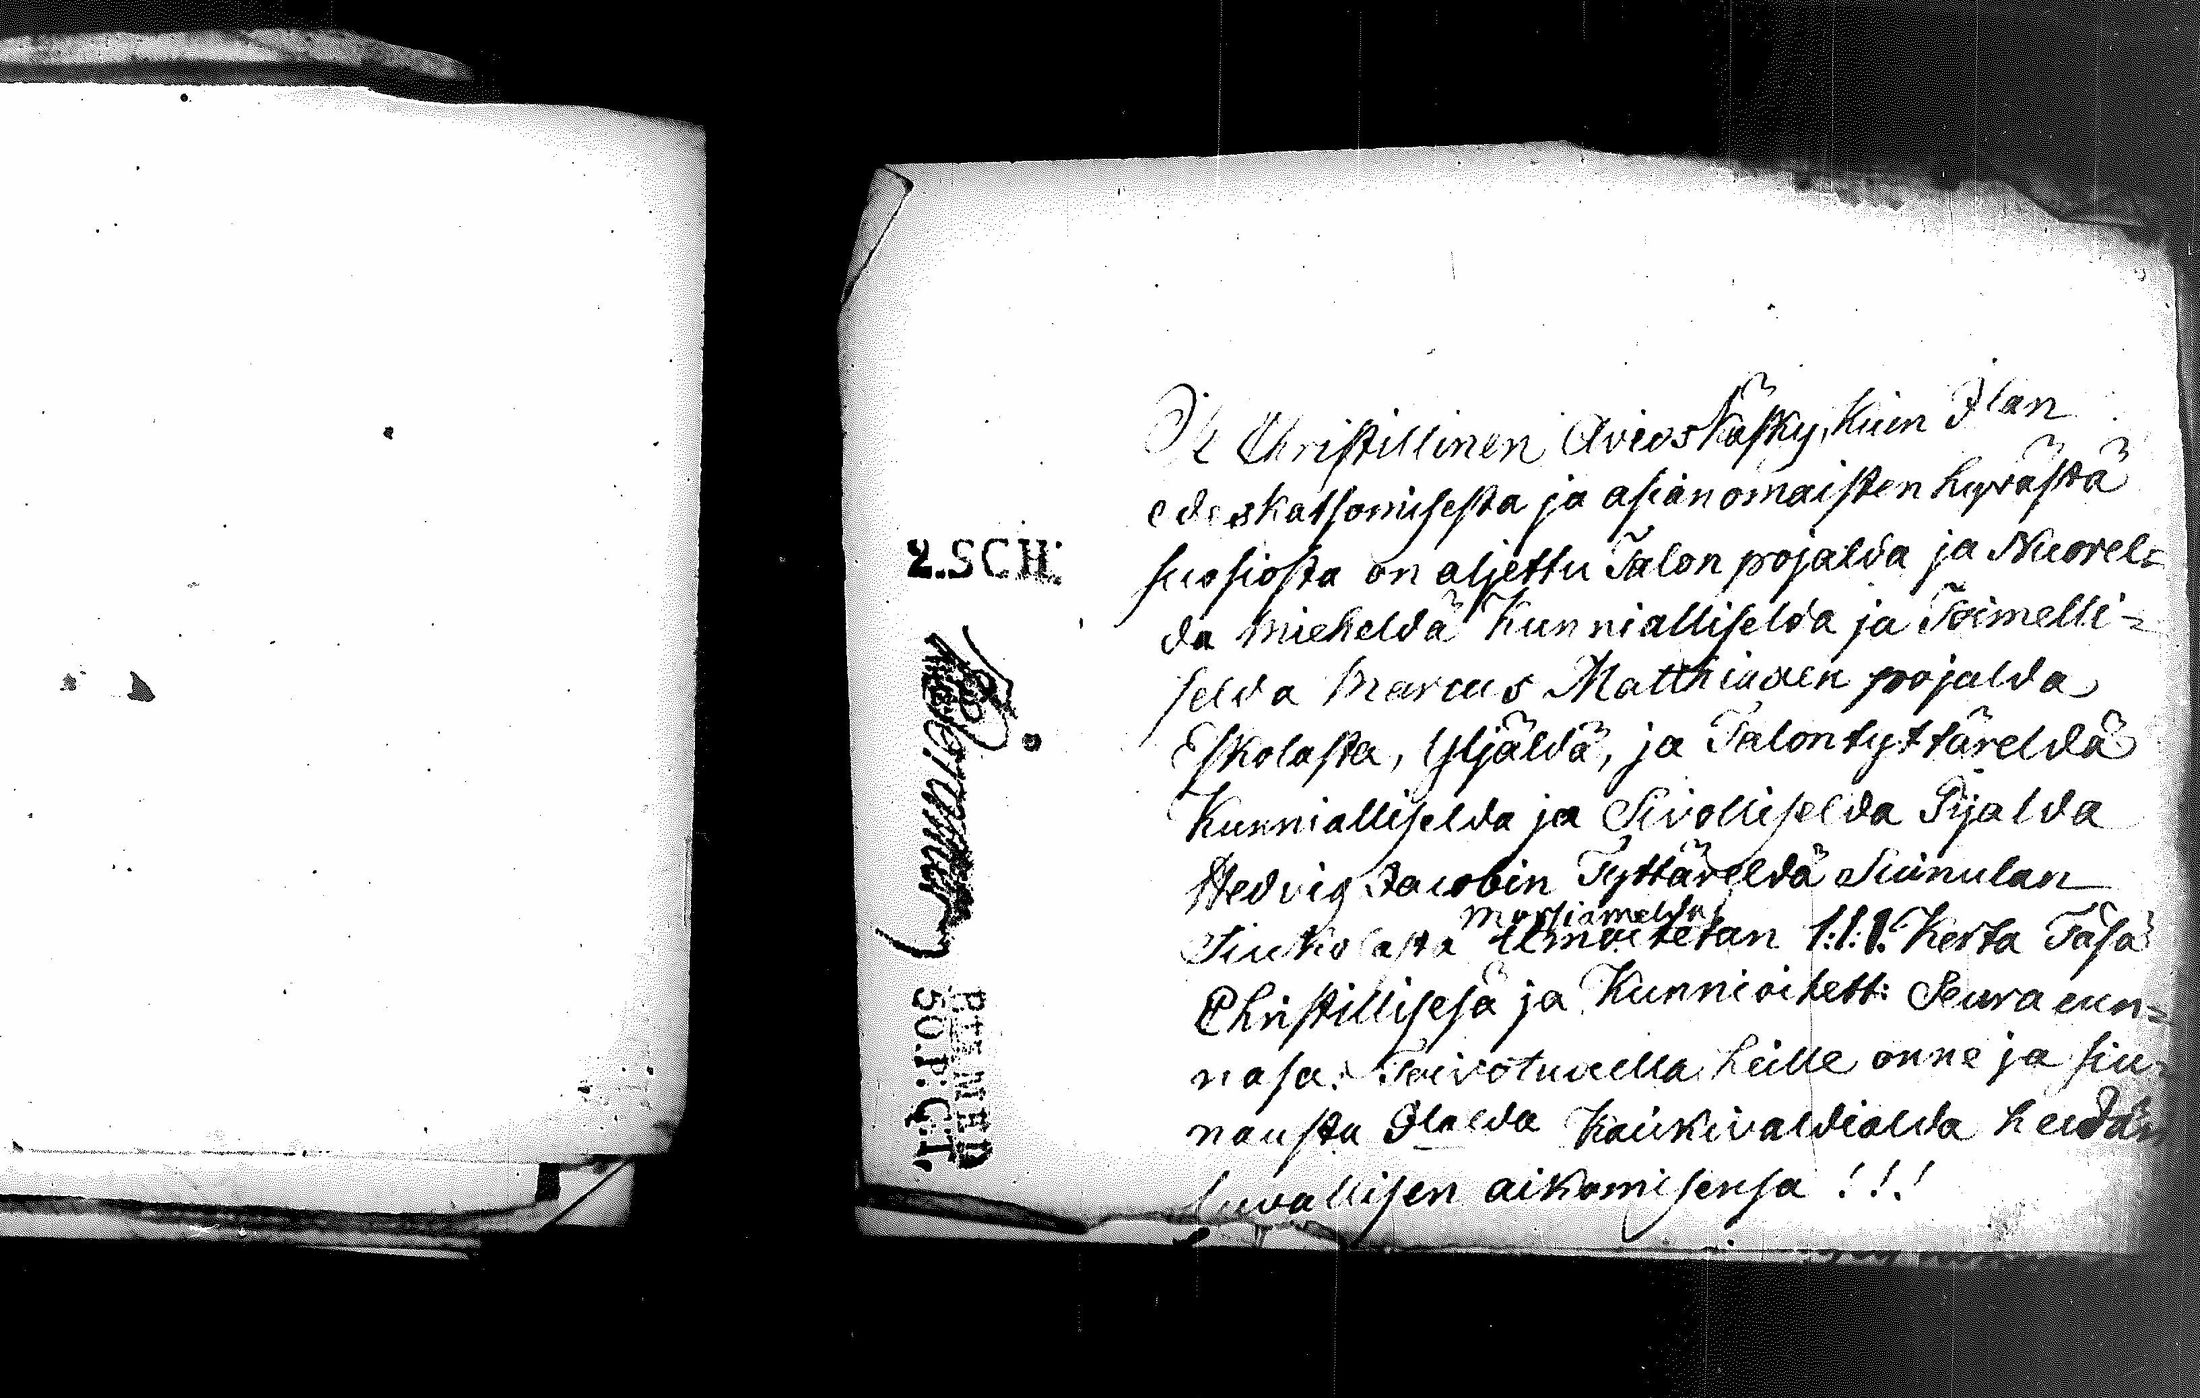 2.SCH:
P:TE MED
50.P:CT.
Se Christillinen Avios Käsky, Kuin Jlan
edeskatsomisesta ja asianomaisten hyvästä
suosiosta on aljettu Talon pojalda ja Nuorel=
da Mieheldä Kunnialliselda ja Toimelli=
selda Marcus Matthiaxen pojalda
Eskolasta, Yljäldä, ja Talontyttäreldä
Kunnialliselda ja Sivolliselda Pijalda
Hedvig Jacobin Tyttäreldä Siunulan
Morsiamelda
Ilmoitetan 1:1:1: Kerta Täsä
Christillisesä ja Kunnioitett: Seuracun=
nasa: Toivotuxella heille onne ja siu=
nausta Jlalda Kaikivaldialda heidän
luvallisen aikomisensa!!!